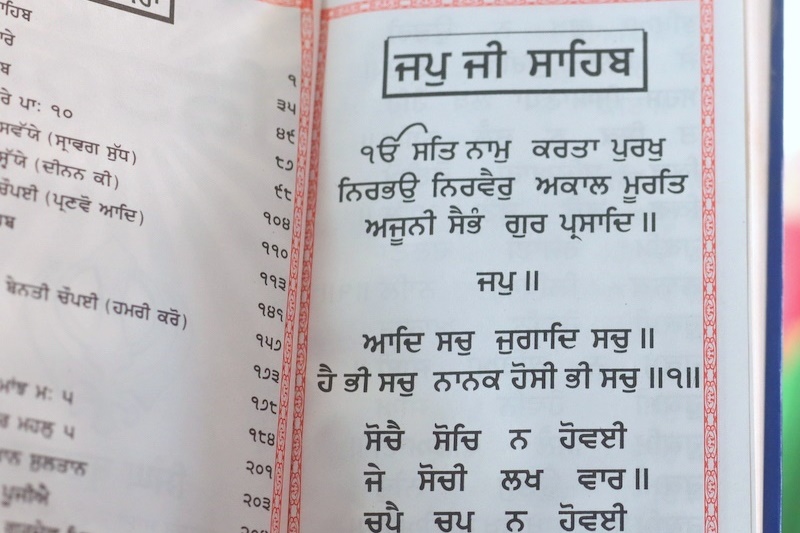 ਸਾਹਿਬ
੧
੩੫
ਰੇ ਪਾ: ੧੦
੪੯
ਸਵੱਯੇ (ਸ੍ਰਾਵਗ ਸੁੱਧ)
੮੭
(ਦੀਨਨ ਕੀ)
੯੮
ਚੌਪਈ (ਪ੍ਰਣਵੋ ਆਦਿ)
੧੦੪
੧੧੦
੧੧੩
ਬੇਨਤੀ ਚੌਪਈ (ਹਮਰੀ ਕਰੋ)
੧੪੧
੧੫੭
੧੭੩
ਮਾਂਝ ਮ: ੫
੧੭੮
ਮਹਲੁ ੫
੧੮੪
ਸੁਲਤਾਨ
੨੦੧
ਪੂਜੀਐ
੨੦੩
ਜਪੁ ਜੀ ਸਾਹਿਬ
ੴ ਸਤਿ ਨਾਮੁ ਕਰਤਾ ਪੁਰਖੁ
ਨਿਰਭਉ ਨਿਰਵੈਰੁ ਅਕਾਲ ਮੂਰਤਿ
ਅਜੂਨੀ ਸੈਭੰ ਗੁਰ ਪ੍ਰਸਾਦਿ ॥
ਜਪੁ ॥
ਆਦਿ ਸਚੁ ਜੁਗਾਦਿ ਸਚੁ ॥
ਹੈ ਭੀ ਸਚੁ ਨਾਨਕ ਹੋਸੀ ਭੀ ਸਚੁ ॥੧॥
ਸੋਚੈ ਸੋਚਿ ਨ ਹੋਵਈ
ਜੇ ਸੋਚੀ ਲਖ ਵਾਰ ॥
ਚੁਪੈ ਚੁਪ ਨ ਹੋਵਈ